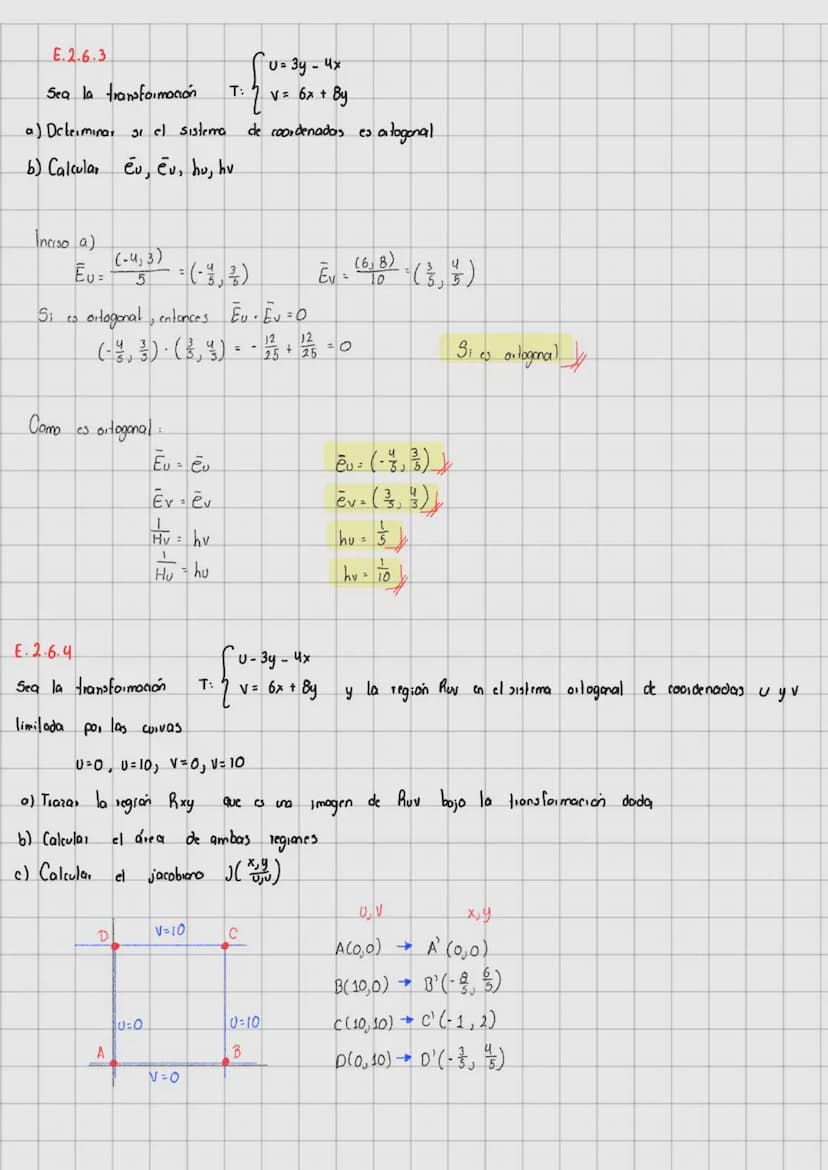 E.2.6.3
Sea la transformación T: { U = 3y - 4x
V = 6x + 8y
a) Determinar si el sistema de coordenadas es ortogonal
b) Calcular ēu, ēv, hu, hv
Inciso a)
Ēu = (-4,3)/5 = (-4/5, 3/5) Ēv = (6,8)/10 = (3/5, 4/5)
Si es ortogonal, entonces Ēu · Ēv = 0
(-4/5, 3/5) · (3/5, 4/5) = -12/25 + 12/25 = 0 Si es ortogonal
Como es ortogonal:
Ēu = ēu ēu = (-4/5, 3/5)
Ēv = ēv ēv = (3/5, 4/5)
1/Hv = hv hu = 1/5
1/Hu = hu hv = 1/10
E.2.6.4
Sea la transformación T: { U - 3y - 4x
V = 6x + 8y y la región Ruv en el sistema ortogonal de coordenadas u y v
limitada por las curvas
U=0, U=10, V=0, V=10
a) Trazar la región Rxy que es una imagen de Ruv bajo la transformación dada
b) Calcular el área de ambas regiones
c) Calcular el jacobiano J(x,y/u,v)
U,V x,y
D V=10 C
A(0,0) → A'(0,0)
B(10,0) → B'(-8/5, 6/5)
U=0 U=10
C(10,10) → C'(-1, 2)
A B
D(0,10) → D'(-3/5, 4/5)
V=0